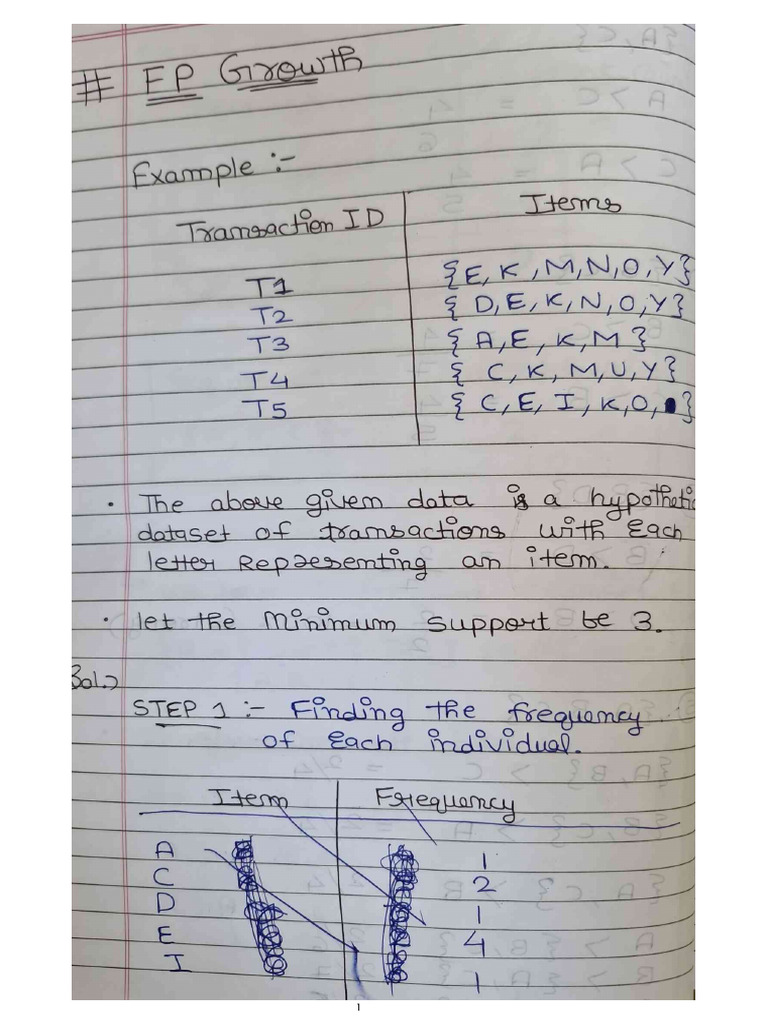 # FP Growth
Example :-
Transaction ID Items
T1 {E, K, M, N, O, Y}
T2 {D, E, K, N, O, Y}
T3 {A, E, K, M}
T4 {C, K, M, U, Y}
T5 {C, E, I, K, O, }
• The above given data is a hypothetic
dataset of transactions with each
letter Representing an item.
• let the Minimum support be 3.
Sol.→
STEP 1 :- Finding the frequency
of each individual.
Item Frequency
A 1
C 2
D 1
E 4
I 1
1